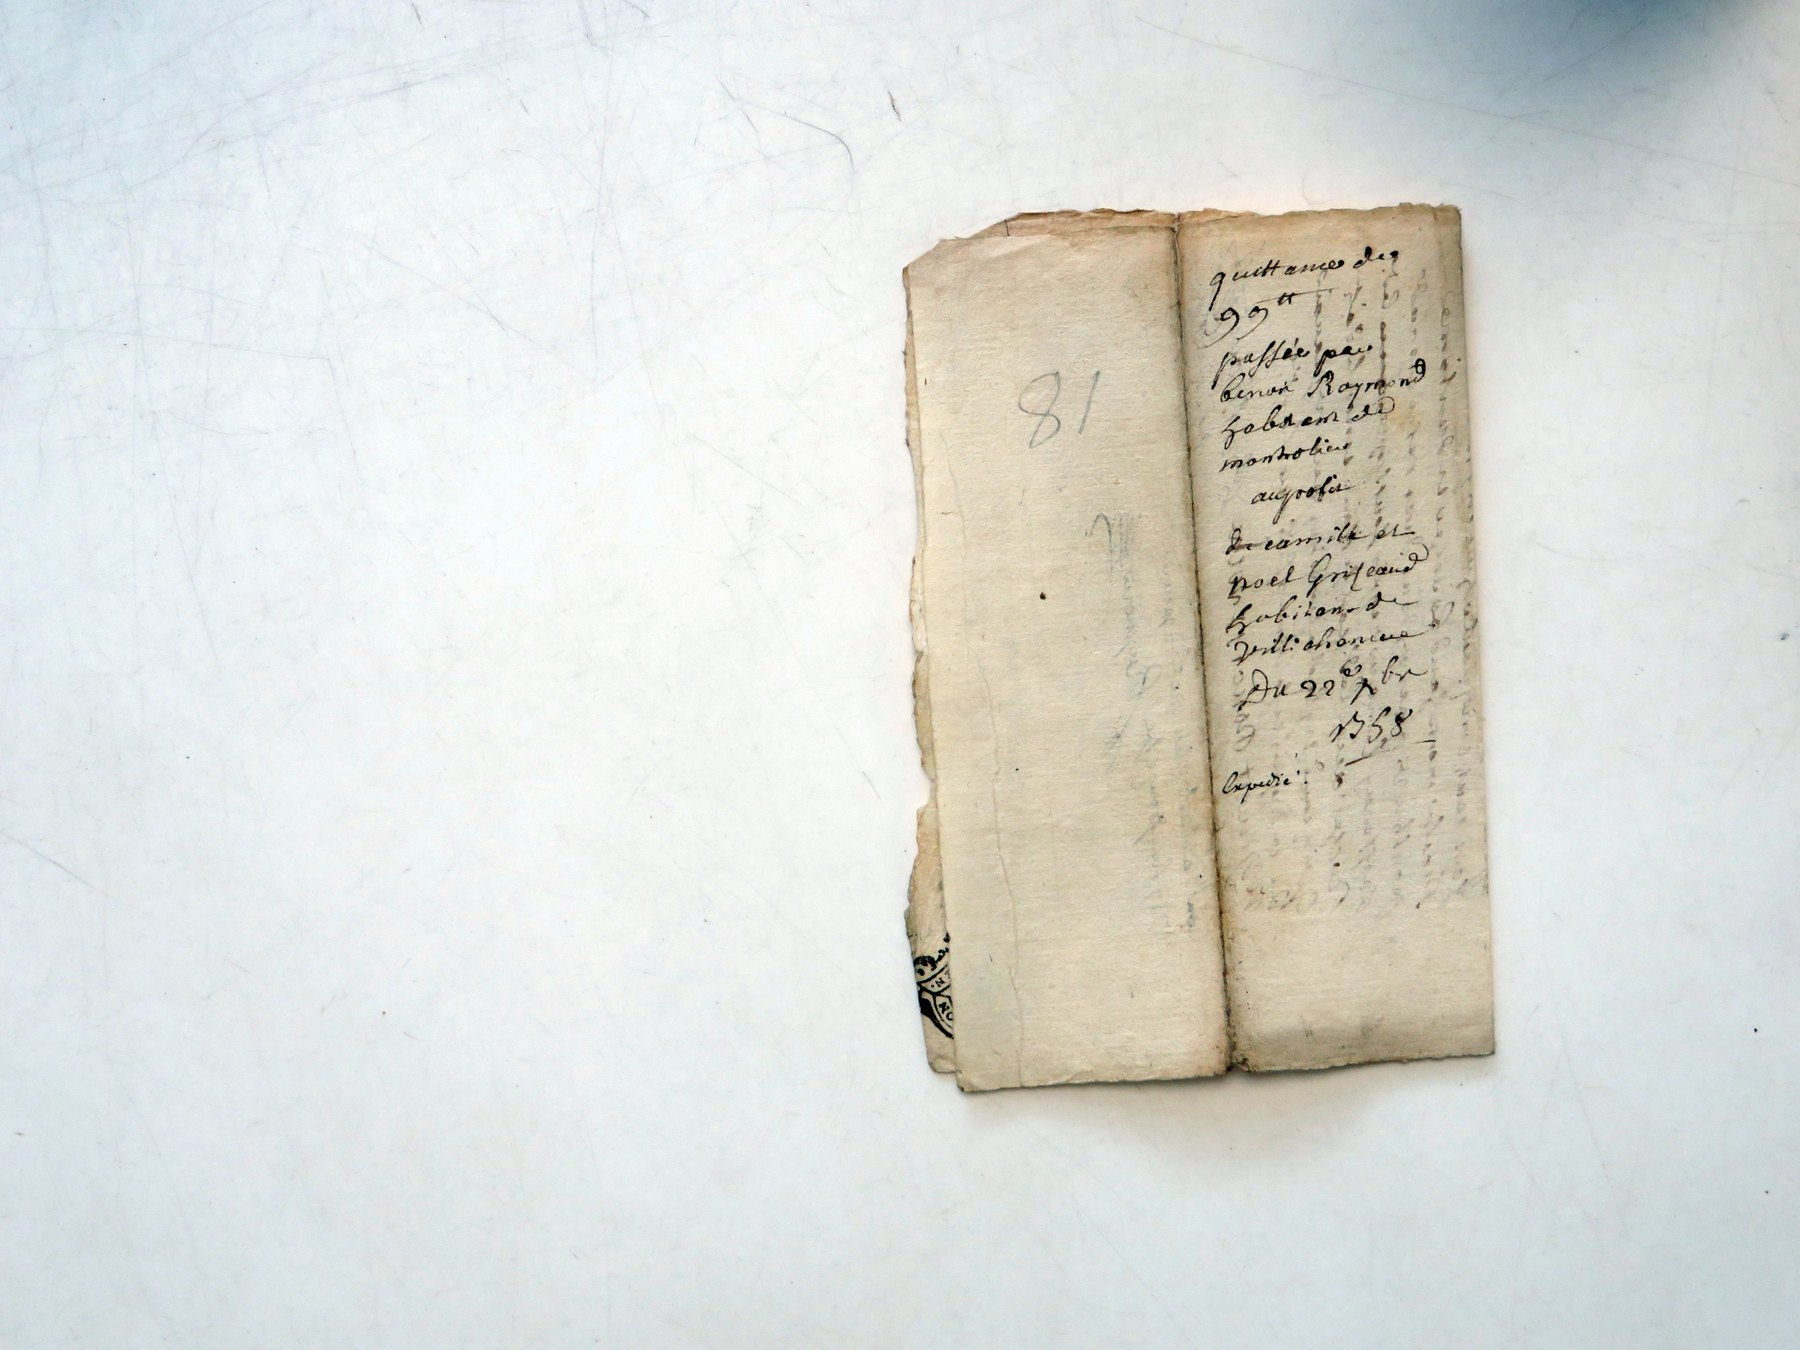 81
quittance de
99ᵗᵗ
passée par
benoit Raymond
habitant de
montrolieu
au profit
de camille et
noel Griseaud
habitans de
Du 22ᵉ xbre
1758
Expedié